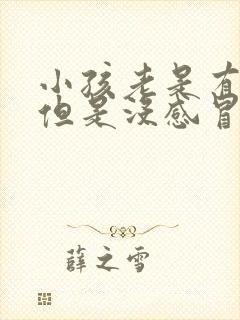 小孩老是有
但是没感冒
薛之雪